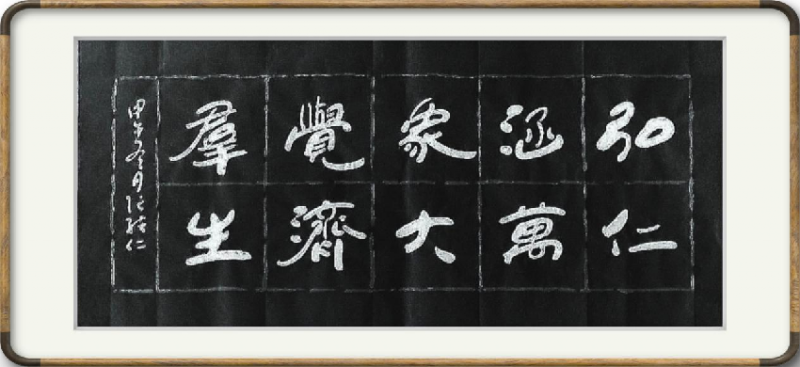 弘仁
涵萬
象大
覺濟
羣生
甲午冬月